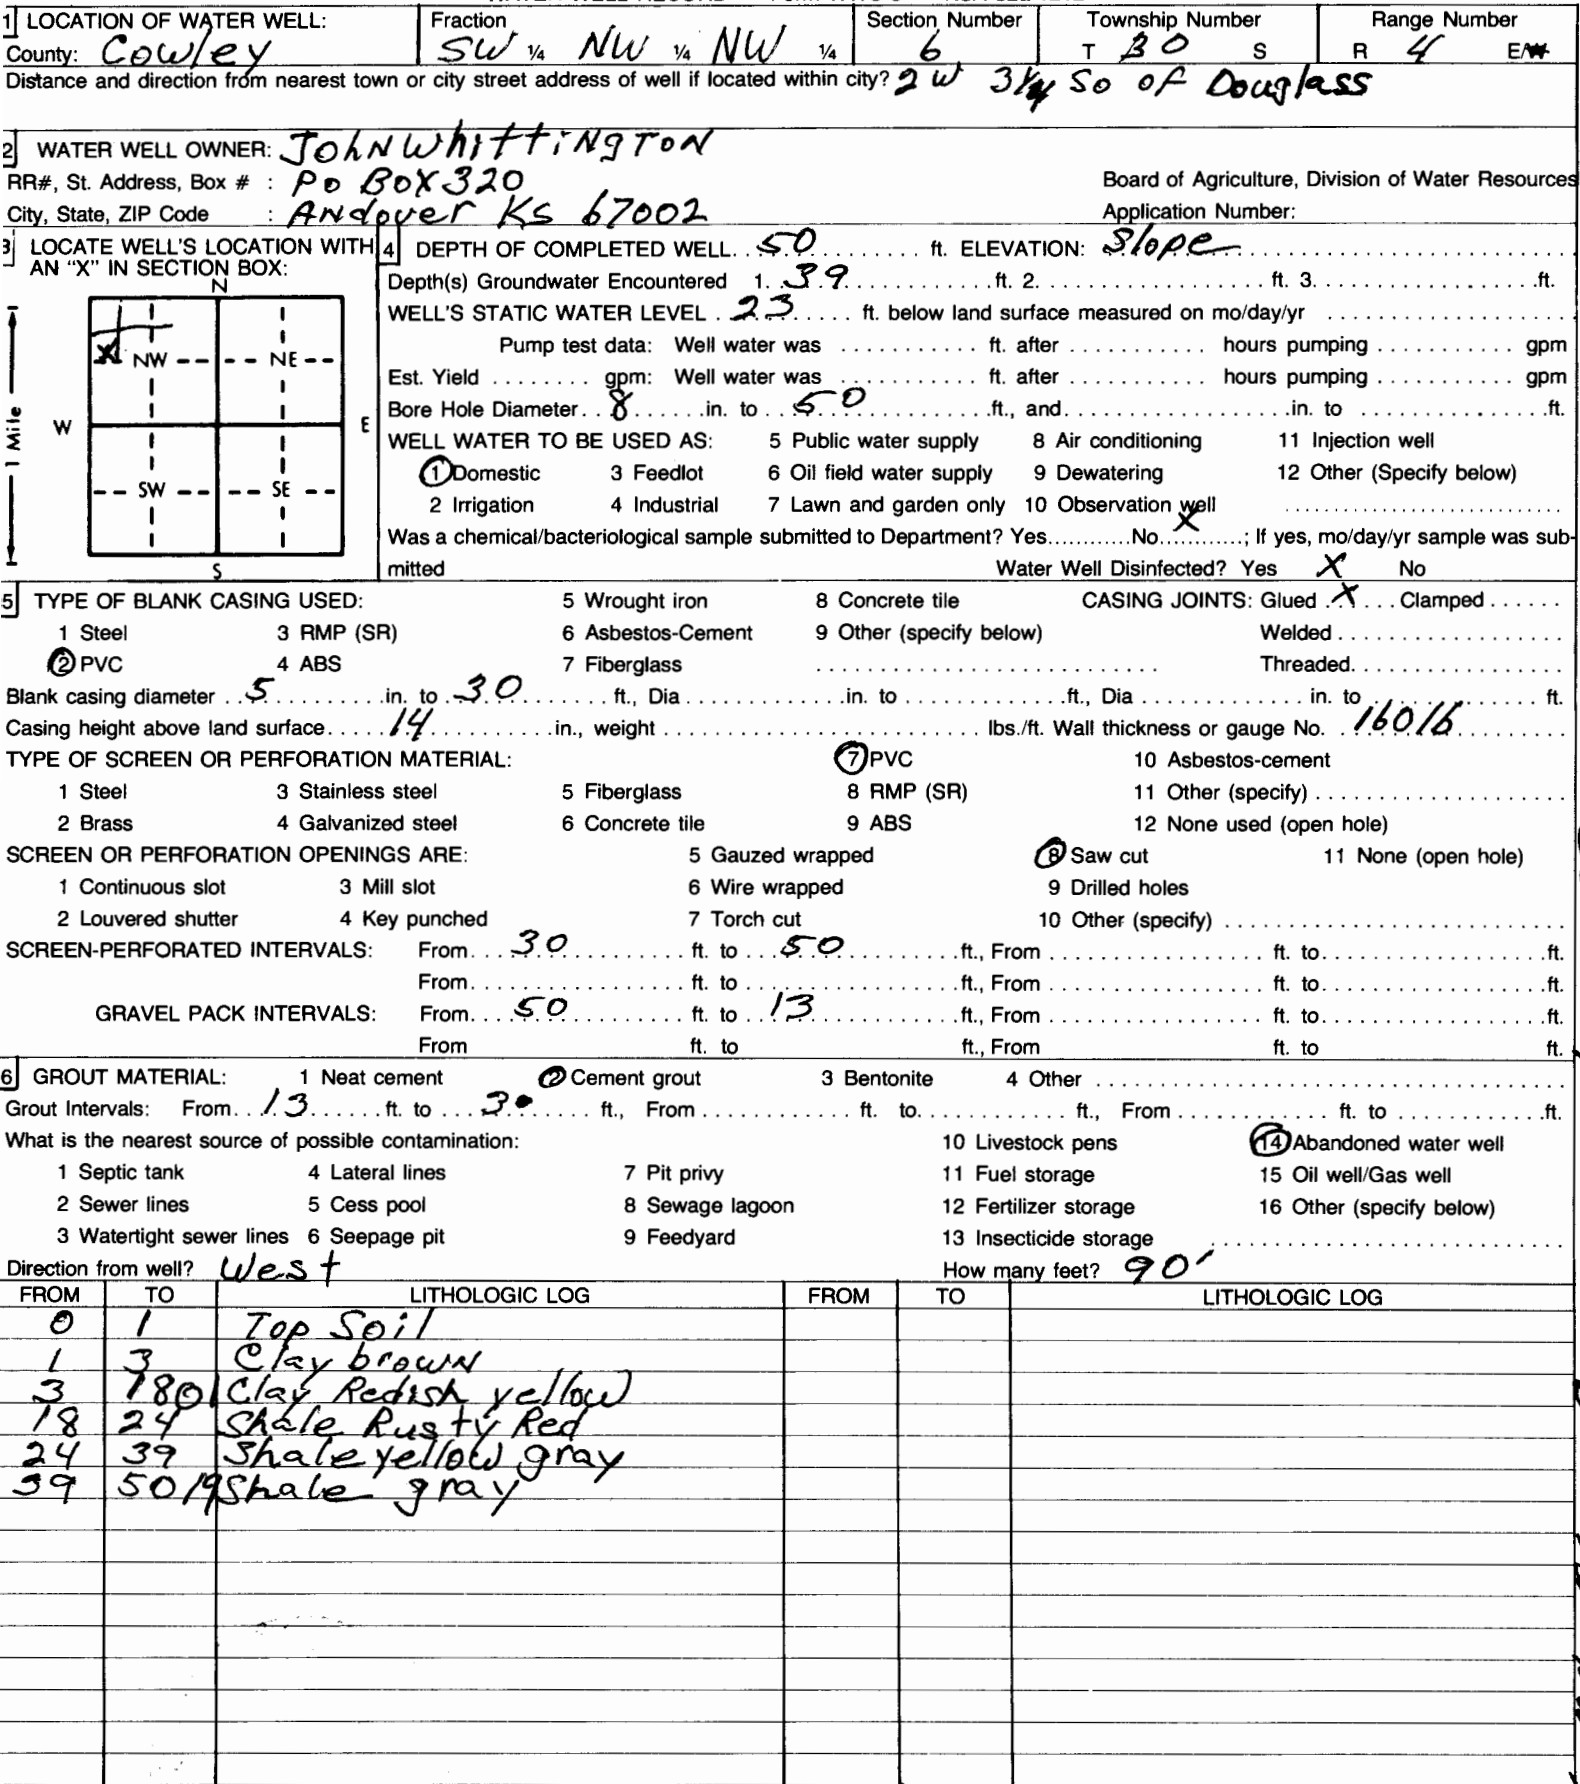 1 LOCATION OF WATER WELL: Fraction Section Number Township Number Range Number
County: Cowley SW ¼ NW ¼ NW ¼ 6 T 30 S R 4 E/W
Distance and direction from nearest town or city street address of well if located within city? 2 W 3 1/4 So of Douglass
2 WATER WELL OWNER: John Whittington
RR#, St. Address, Box # : PO BOX 320 Board of Agriculture, Division of Water Resources
City, State, ZIP Code : Andover Ks 67002 Application Number:
3 LOCATE WELL'S LOCATION WITH AN "X" IN SECTION BOX:
N
X NW NE
W E
SW SE
S
1 Mile
4 DEPTH OF COMPLETED WELL 50 ft. ELEVATION: Slope
Depth(s) Groundwater Encountered 1. 39 ft. 2. ft. 3. ft.
WELL'S STATIC WATER LEVEL 23 ft. below land surface measured on mo/day/yr
Pump test data: Well water was ft. after hours pumping gpm
Est. Yield gpm: Well water was ft. after hours pumping gpm
Bore Hole Diameter 8 in. to 50 ft., and in. to ft.
WELL WATER TO BE USED AS: 5 Public water supply 8 Air conditioning 11 Injection well
1 Domestic 3 Feedlot 6 Oil field water supply 9 Dewatering 12 Other (Specify below)
2 Irrigation 4 Industrial 7 Lawn and garden only 10 Observation well
Was a chemical/bacteriological sample submitted to Department? Yes No X ; If yes, mo/day/yr sample was sub-
mitted Water Well Disinfected? Yes X No
5 TYPE OF BLANK CASING USED: 5 Wrought iron 8 Concrete tile CASING JOINTS: Glued X Clamped
1 Steel 3 RMP (SR) 6 Asbestos-Cement 9 Other (specify below) Welded
2 PVC 4 ABS 7 Fiberglass Threaded
Blank casing diameter 5 in. to 30 ft., Dia in. to ft., Dia in. to ft.
Casing height above land surface 14 in., weight lbs./ft. Wall thickness or gauge No. 160 lb
TYPE OF SCREEN OR PERFORATION MATERIAL: 7 PVC 10 Asbestos-cement
1 Steel 3 Stainless steel 5 Fiberglass 8 RMP (SR) 11 Other (specify)
2 Brass 4 Galvanized steel 6 Concrete tile 9 ABS 12 None used (open hole)
SCREEN OR PERFORATION OPENINGS ARE: 5 Gauzed wrapped 8 Saw cut 11 None (open hole)
1 Continuous slot 3 Mill slot 6 Wire wrapped 9 Drilled holes
2 Louvered shutter 4 Key punched 7 Torch cut 10 Other (specify)
SCREEN-PERFORATED INTERVALS: From 30 ft. to 50 ft., From ft. to ft.
From ft. to ft., From ft. to ft.
GRAVEL PACK INTERVALS: From 50 ft. to 13 ft., From ft. to ft.
From ft. to ft., From ft. to ft.
6 GROUT MATERIAL: 1 Neat cement 2 Cement grout 3 Bentonite 4 Other
Grout Intervals: From 13 ft. to 3 ft., From ft. to ft., From ft. to ft.
What is the nearest source of possible contamination: 10 Livestock pens 14 Abandoned water well
1 Septic tank 4 Lateral lines 7 Pit privy 11 Fuel storage 15 Oil well/Gas well
2 Sewer lines 5 Cess pool 8 Sewage lagoon 12 Fertilizer storage 16 Other (specify below)
3 Watertight sewer lines 6 Seepage pit 9 Feedyard 13 Insecticide storage
Direction from well? West How many feet? 90'
FROM TO LITHOLOGIC LOG FROM TO LITHOLOGIC LOG
0 1 Top Soil
1 3 Clay brown
3 18 Clay Redish yellow
18 24 Shale Rusty Red
24 39 Shale yellow gray
39 50 Shale gray